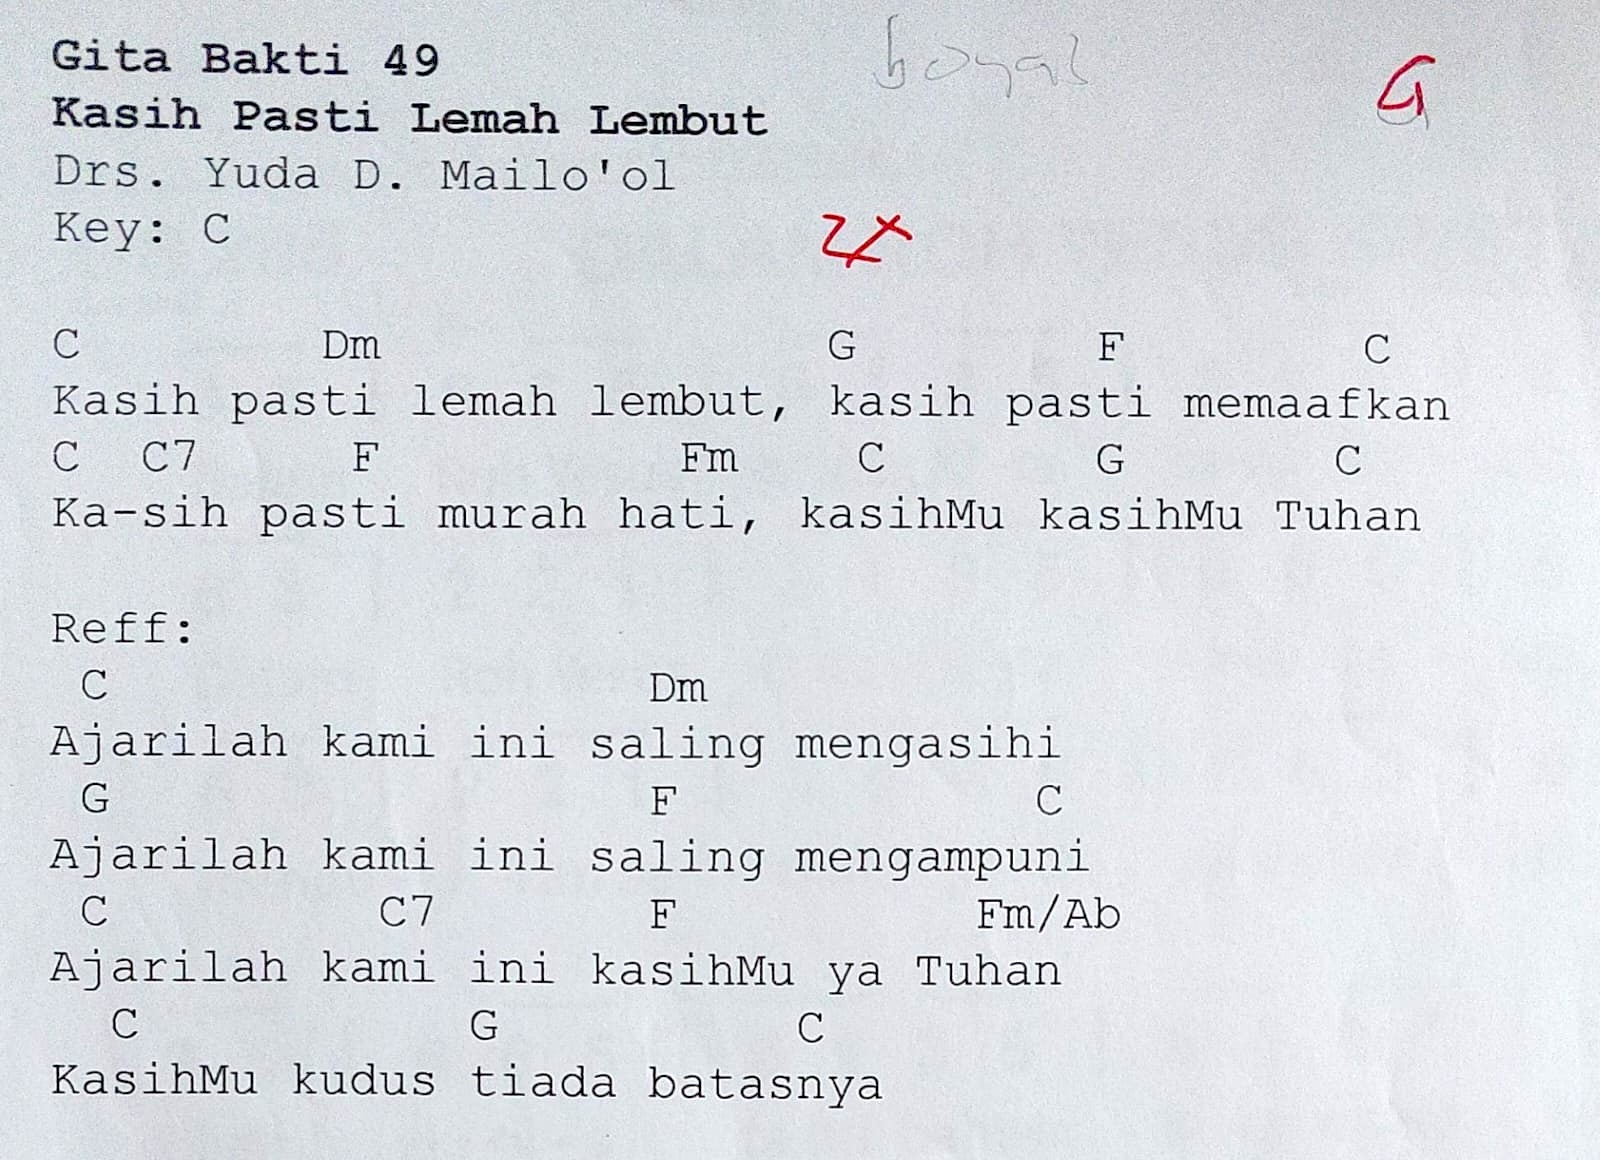 Gita Bakti 49
G
Kasih Pasti Lemah Lembut
Drs. Yuda D. Mailo'ol
Key: C
2x
C Dm G F C
Kasih pasti lemah lembut, kasih pasti memaafkan
C C7 F Fm C G C
Ka-sih pasti murah hati, kasihMu kasihMu Tuhan
Reff:
C Dm
Ajarilah kami ini saling mengasihi
G F C
Ajarilah kami ini saling mengampuni
C C7 F Fm/Ab
Ajarilah kami ini kasihMu ya Tuhan
C G C
KasihMu kudus tiada batasnya